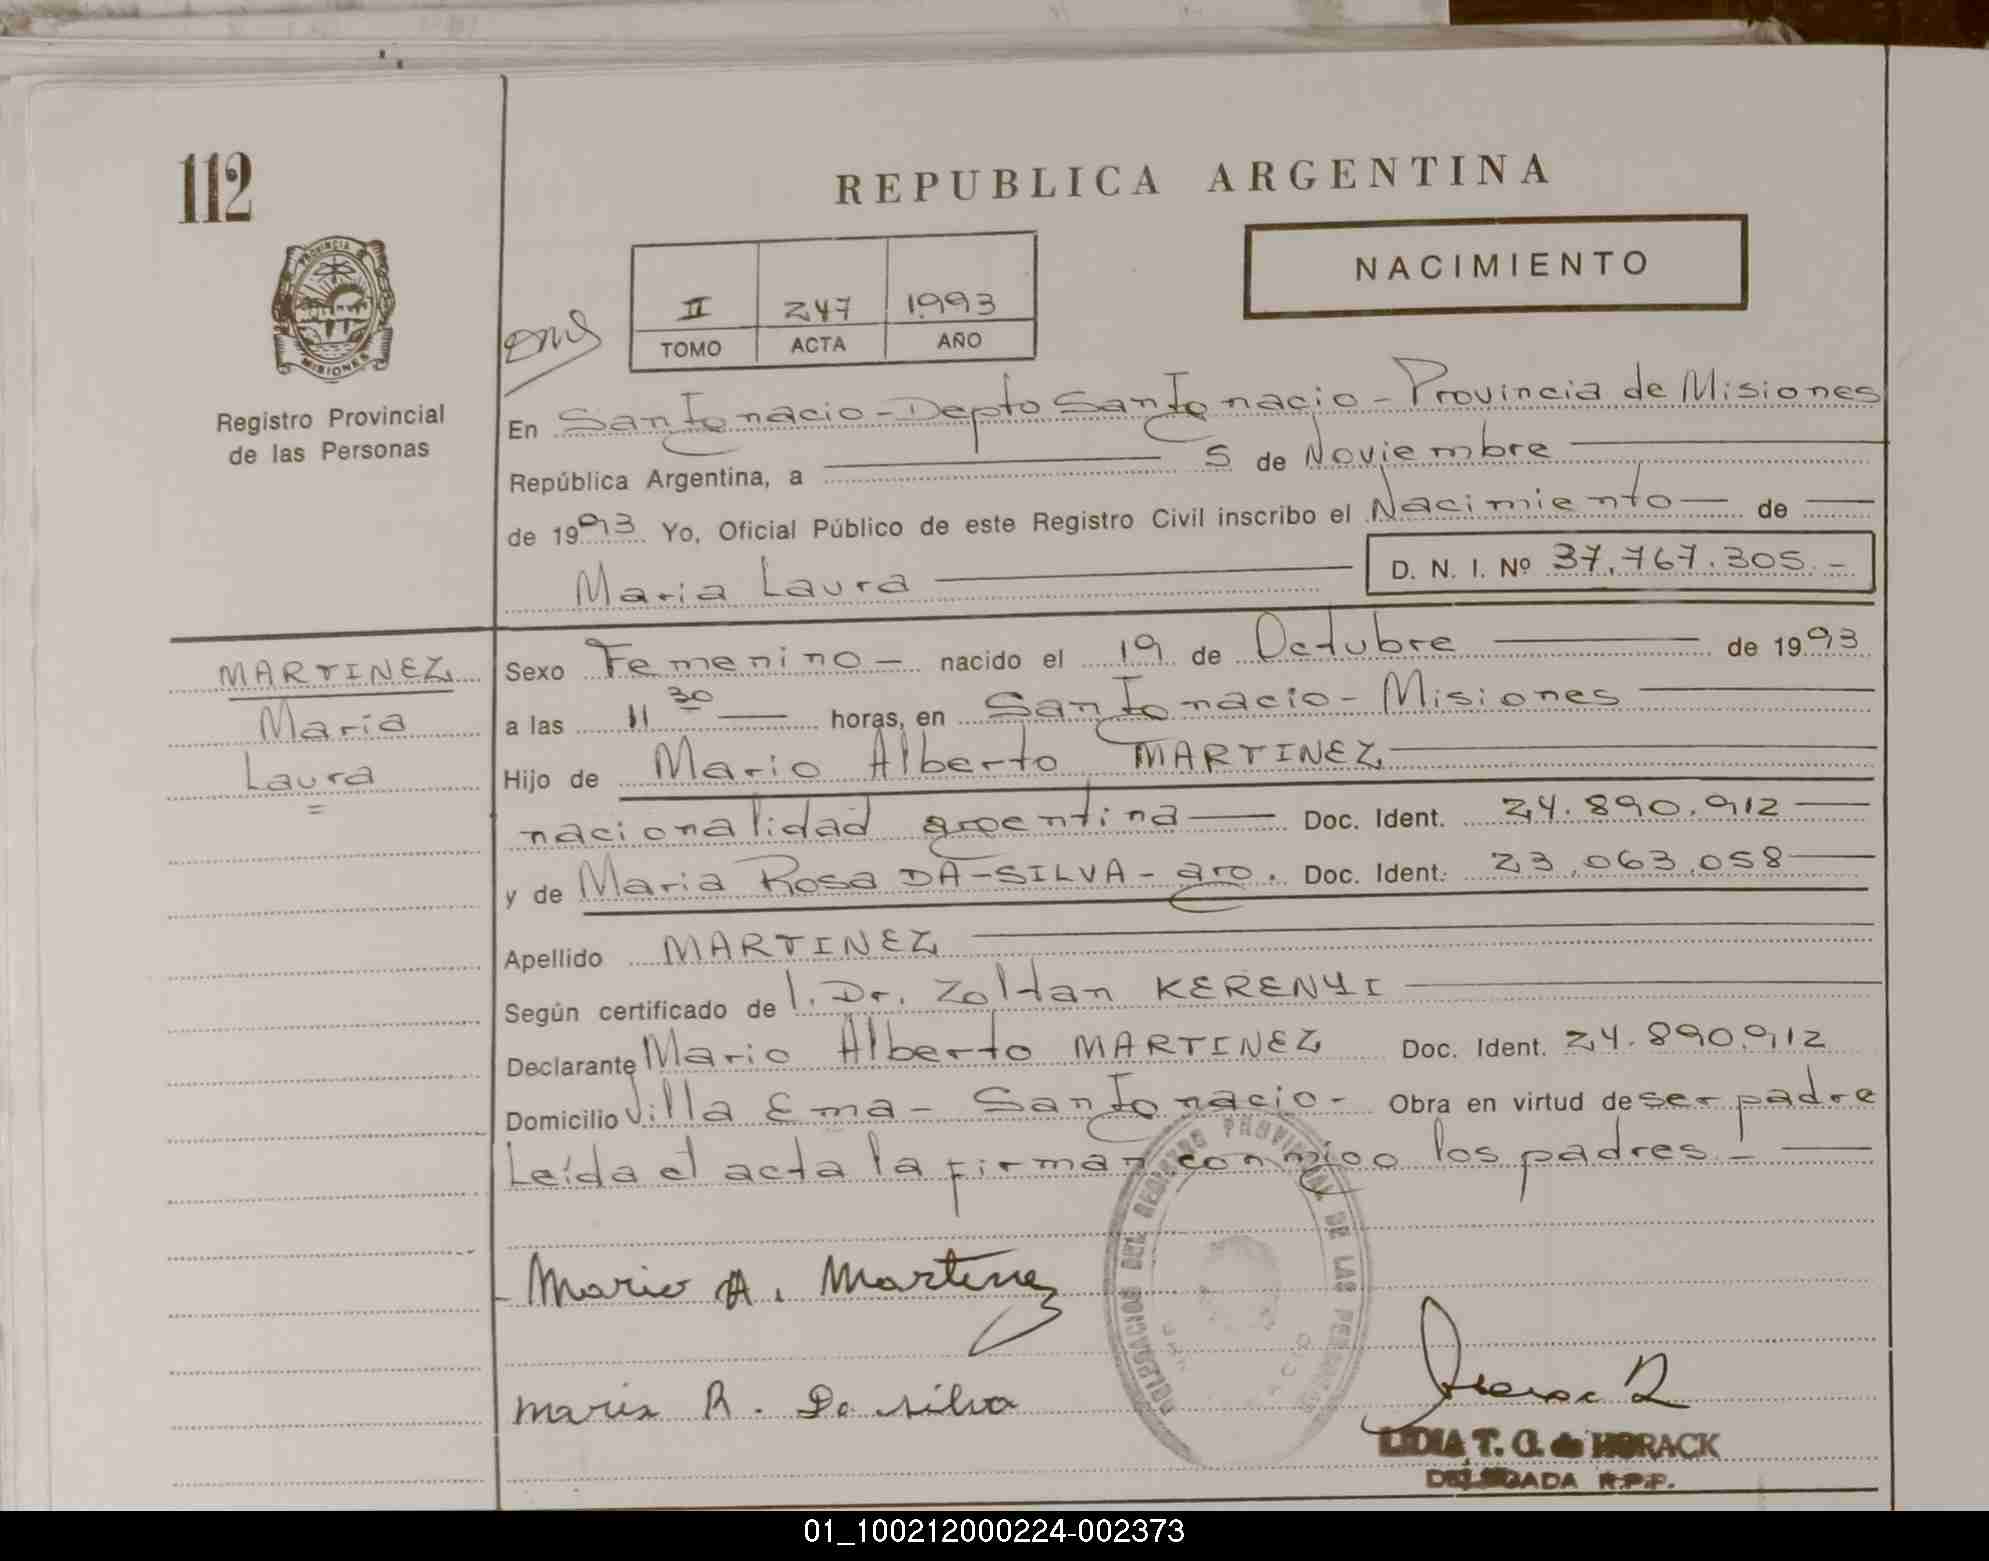 112
REPUBLICA ARGENTINA
PROVINCIA
MISIONES
NACIMIENTO
II 247 1993
TOMO ACTA AÑO
Registro Provincial
de las Personas
En San Ignacio - Depto San Ignacio - Provincia de Misiones
República Argentina, a 5 de Noviembre
de 1993 Yo, Oficial Público de este Registro Civil inscribo el Nacimiento de
Maria Laura D. N. I. Nº 37.767.305.-
MARTINEZ
Maria
Laura
Sexo Femenino - nacido el 19 de Octubre de 1993
a las 11 30 horas, en San Ignacio - Misiones
Hijo de Mario Alberto MARTINEZ
nacionalidad argentina Doc. Ident. 24.890.912
y de Maria Rosa DA-SILVA - arg. Doc. Ident. 23.063.058
Apellido MARTINEZ
Según certificado de l. Dr. Zoltan KERENYI
Declarante Mario Alberto MARTINEZ Doc. Ident. 24.890.912
Domicilio Villa Ema - San Ignacio - Obra en virtud de ser padre
Leída el acta la firman conmigo los padres.-
DELEGACION DEL REGISTRO PROVINCIAL DE LAS PERSONAS
Mario A. Martinez
Maria R. Da silva
LIDIA T. G. de HORACK
DELEGADA R.P.P.
01_100212000224-002373